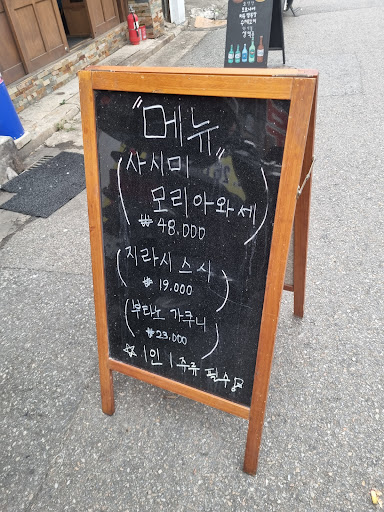 "메뉴"
사시미
모리아와세
₩ 48.000
지라시 스시
₩ 19.000
부타노 가쿠니
₩ 23.000
☆ 1인 1 주류 필수